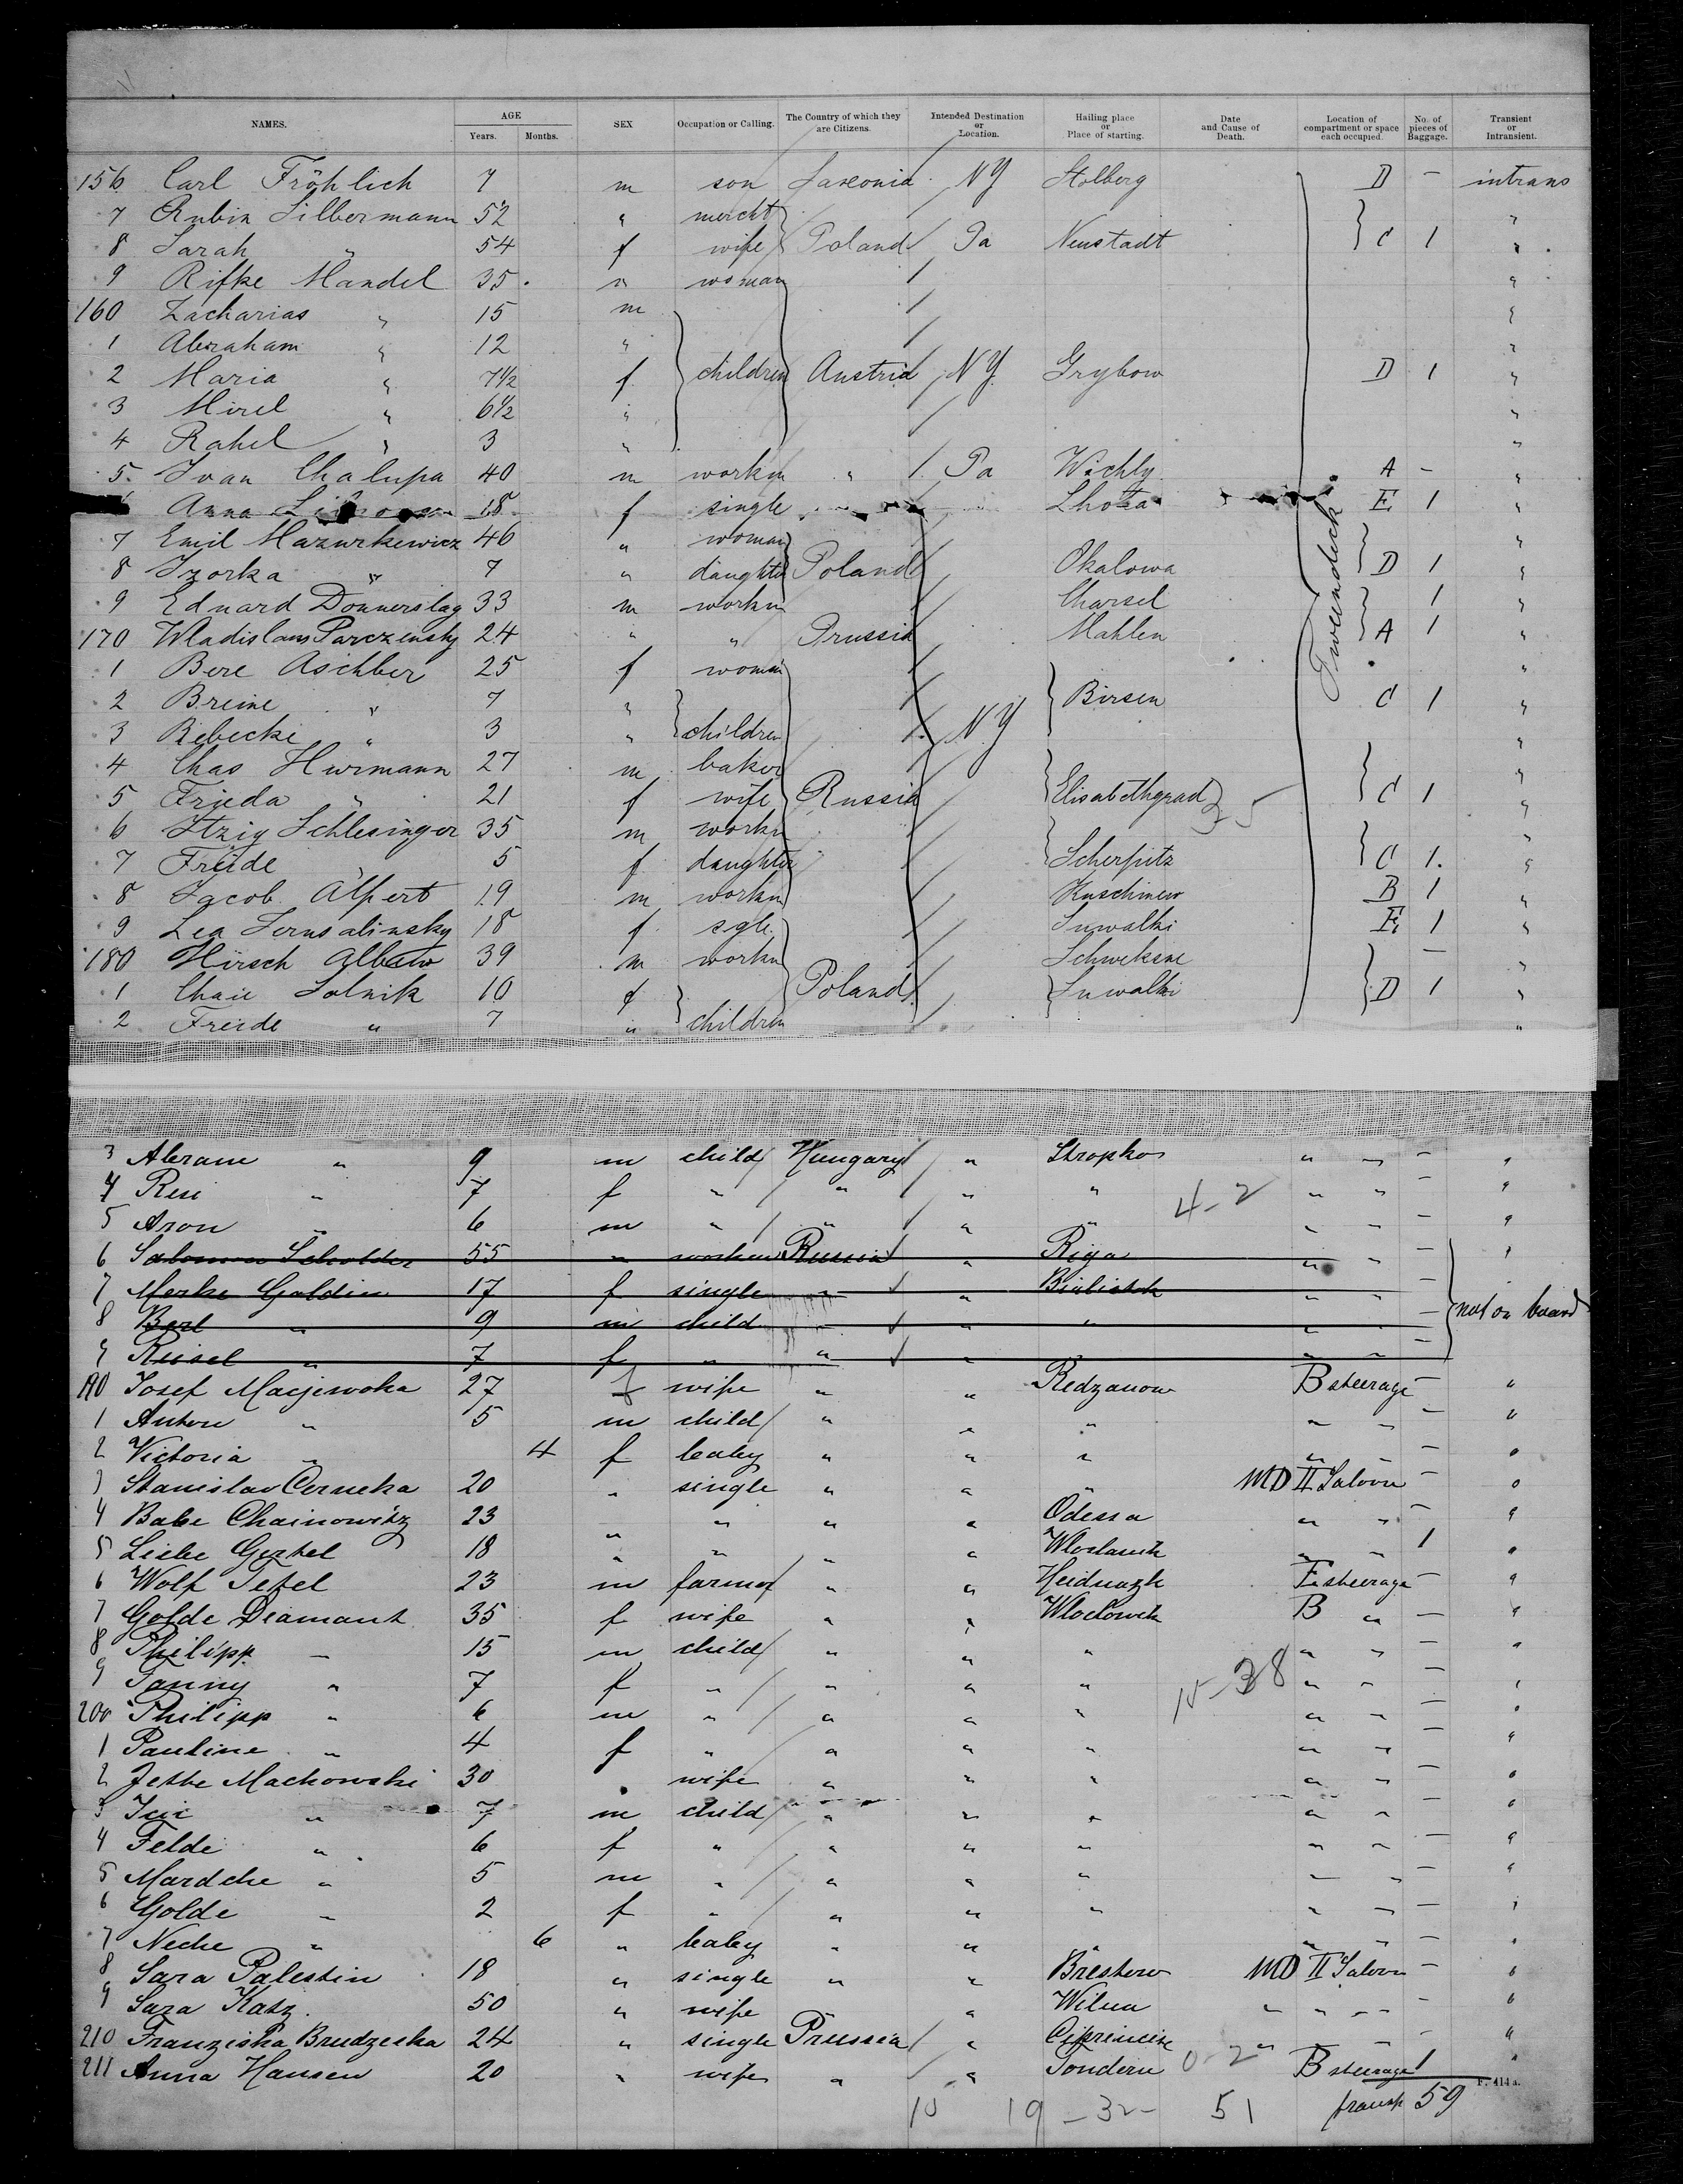 NAMES. AGE Years. Months. SEX Occupation or Calling. The Country of which they are Citizens. Intended Destination or Location. Hailing place or Place of starting. Date and Cause of Death. Location of compartment or space each occupied. No. of pieces of Baggage. Transient or Intransient.
156 Carl Fröhlich 7 m son Saxonia NY Stolberg D - intrans
7 Rubin Silbermann 52 " mercht "
8 Sarah " 54 f wife Poland Pa Neustadt C 1 "
9 Rifke Mandel 35 " woman "
160 Zacharias " 15 m "
1 Abraham " 12 " "
2 Maria " 7½ f children Austria NY Grybow D 1 "
3 Mirel " 6½ " "
4 Rahel " 3 " "
5 Ivan Chalupa 40 m workm " Pa Wichly A - "
Anna 18 f single Lhota E 1 "
7 Emil Mazurkewicz 46 " woman "
8 Izorka " 7 " daughter Poland Okalowa D 1 "
9 Eduard Donnerslag 33 m workm Charsel 1 "
170 Wladislaus Parczensky 24 " " Prussia Mahlen A 1 "
1 Bere Aschber 25 f woman "
2 Breine " 7 " Birsen C 1 "
3 Rebecke " 3 " children NY "
4 Chas Hurmann 27 m baker "
5 Frieda " 21 f wife Russia Elisabethgrad C 1 "
6 Itzig Schlesinger 35 m workm "
7 Freide 5 f daughter Scherpitz C 1 "
8 Jacob Alpert 19 m workm Kuschinew B 1 "
9 Lea Jerusalinsky 18 f sgle Suwalki E 1 "
180 Hirsch Albaw 39 m workm Schweksne - "
1 Chaie Solnik 10 f Poland Suwalki D 1 "
2 Freide " 7 " children "
Tweendeck
35
3 Abram " 9 m child Hungary " Stropko " " - "
4 Resi " 7 f " " " " 4-2 " " - "
5 Aron " 6 m " " " " " " - "
6 Salomon Scholder 55 " workm Russia " Riga " " - "
7 Merke Goldin 17 f single " " Bialistok " " - not on board
8 Berl " 9 m child " " " " " -
9 Reisel " 7 f " " " " " -
190 Josef Maejewska 27 f wife " " Redzanow B steerage - "
1 Anton " 5 m child " " " " " - "
2 Victoria " 4 f baby " " " " " - "
3 Stanislav Cerneka 20 " single " " " MD II Saloon - "
4 Babe Chainowitz 23 " " " " Odessa " " - "
5 Liebe Gertel 18 " " " " " " 1 "
6 Wolf Tefel 23 m farmer " " E steerage - "
7 Golde Diamant 35 f wife " " Wloclowek B " - "
8 Philipp " 15 m child " " " " " - "
9 Fanny " 7 f " " " " " " - "
200 Philipp " 6 m " " " " " " - "
1 Pauline " 4 f " " " " " " - "
2 Jette Machowski 30 " wife " " " " " - "
3 " 7 m child " " " " " - "
4 Felde " 6 f " " " " " " - "
5 Mardche " 5 m " " " " " " - "
6 Golde " 2 f " " " " " " - "
7 Neche " 6 " baby " " " " " - "
8 Sara Palestin 18 " single " " Brestow MD II Saloon - "
9 Sara Katz 50 " wife " Wilna " " " - "
210 Franziska Brudzeska 24 " single Prussia " " " - "
211 Anna Hansen 20 " wife " " Tondern 0-2 B steerage 1 "
F. 414 a.
10 19 - 32 - 51 transp 59